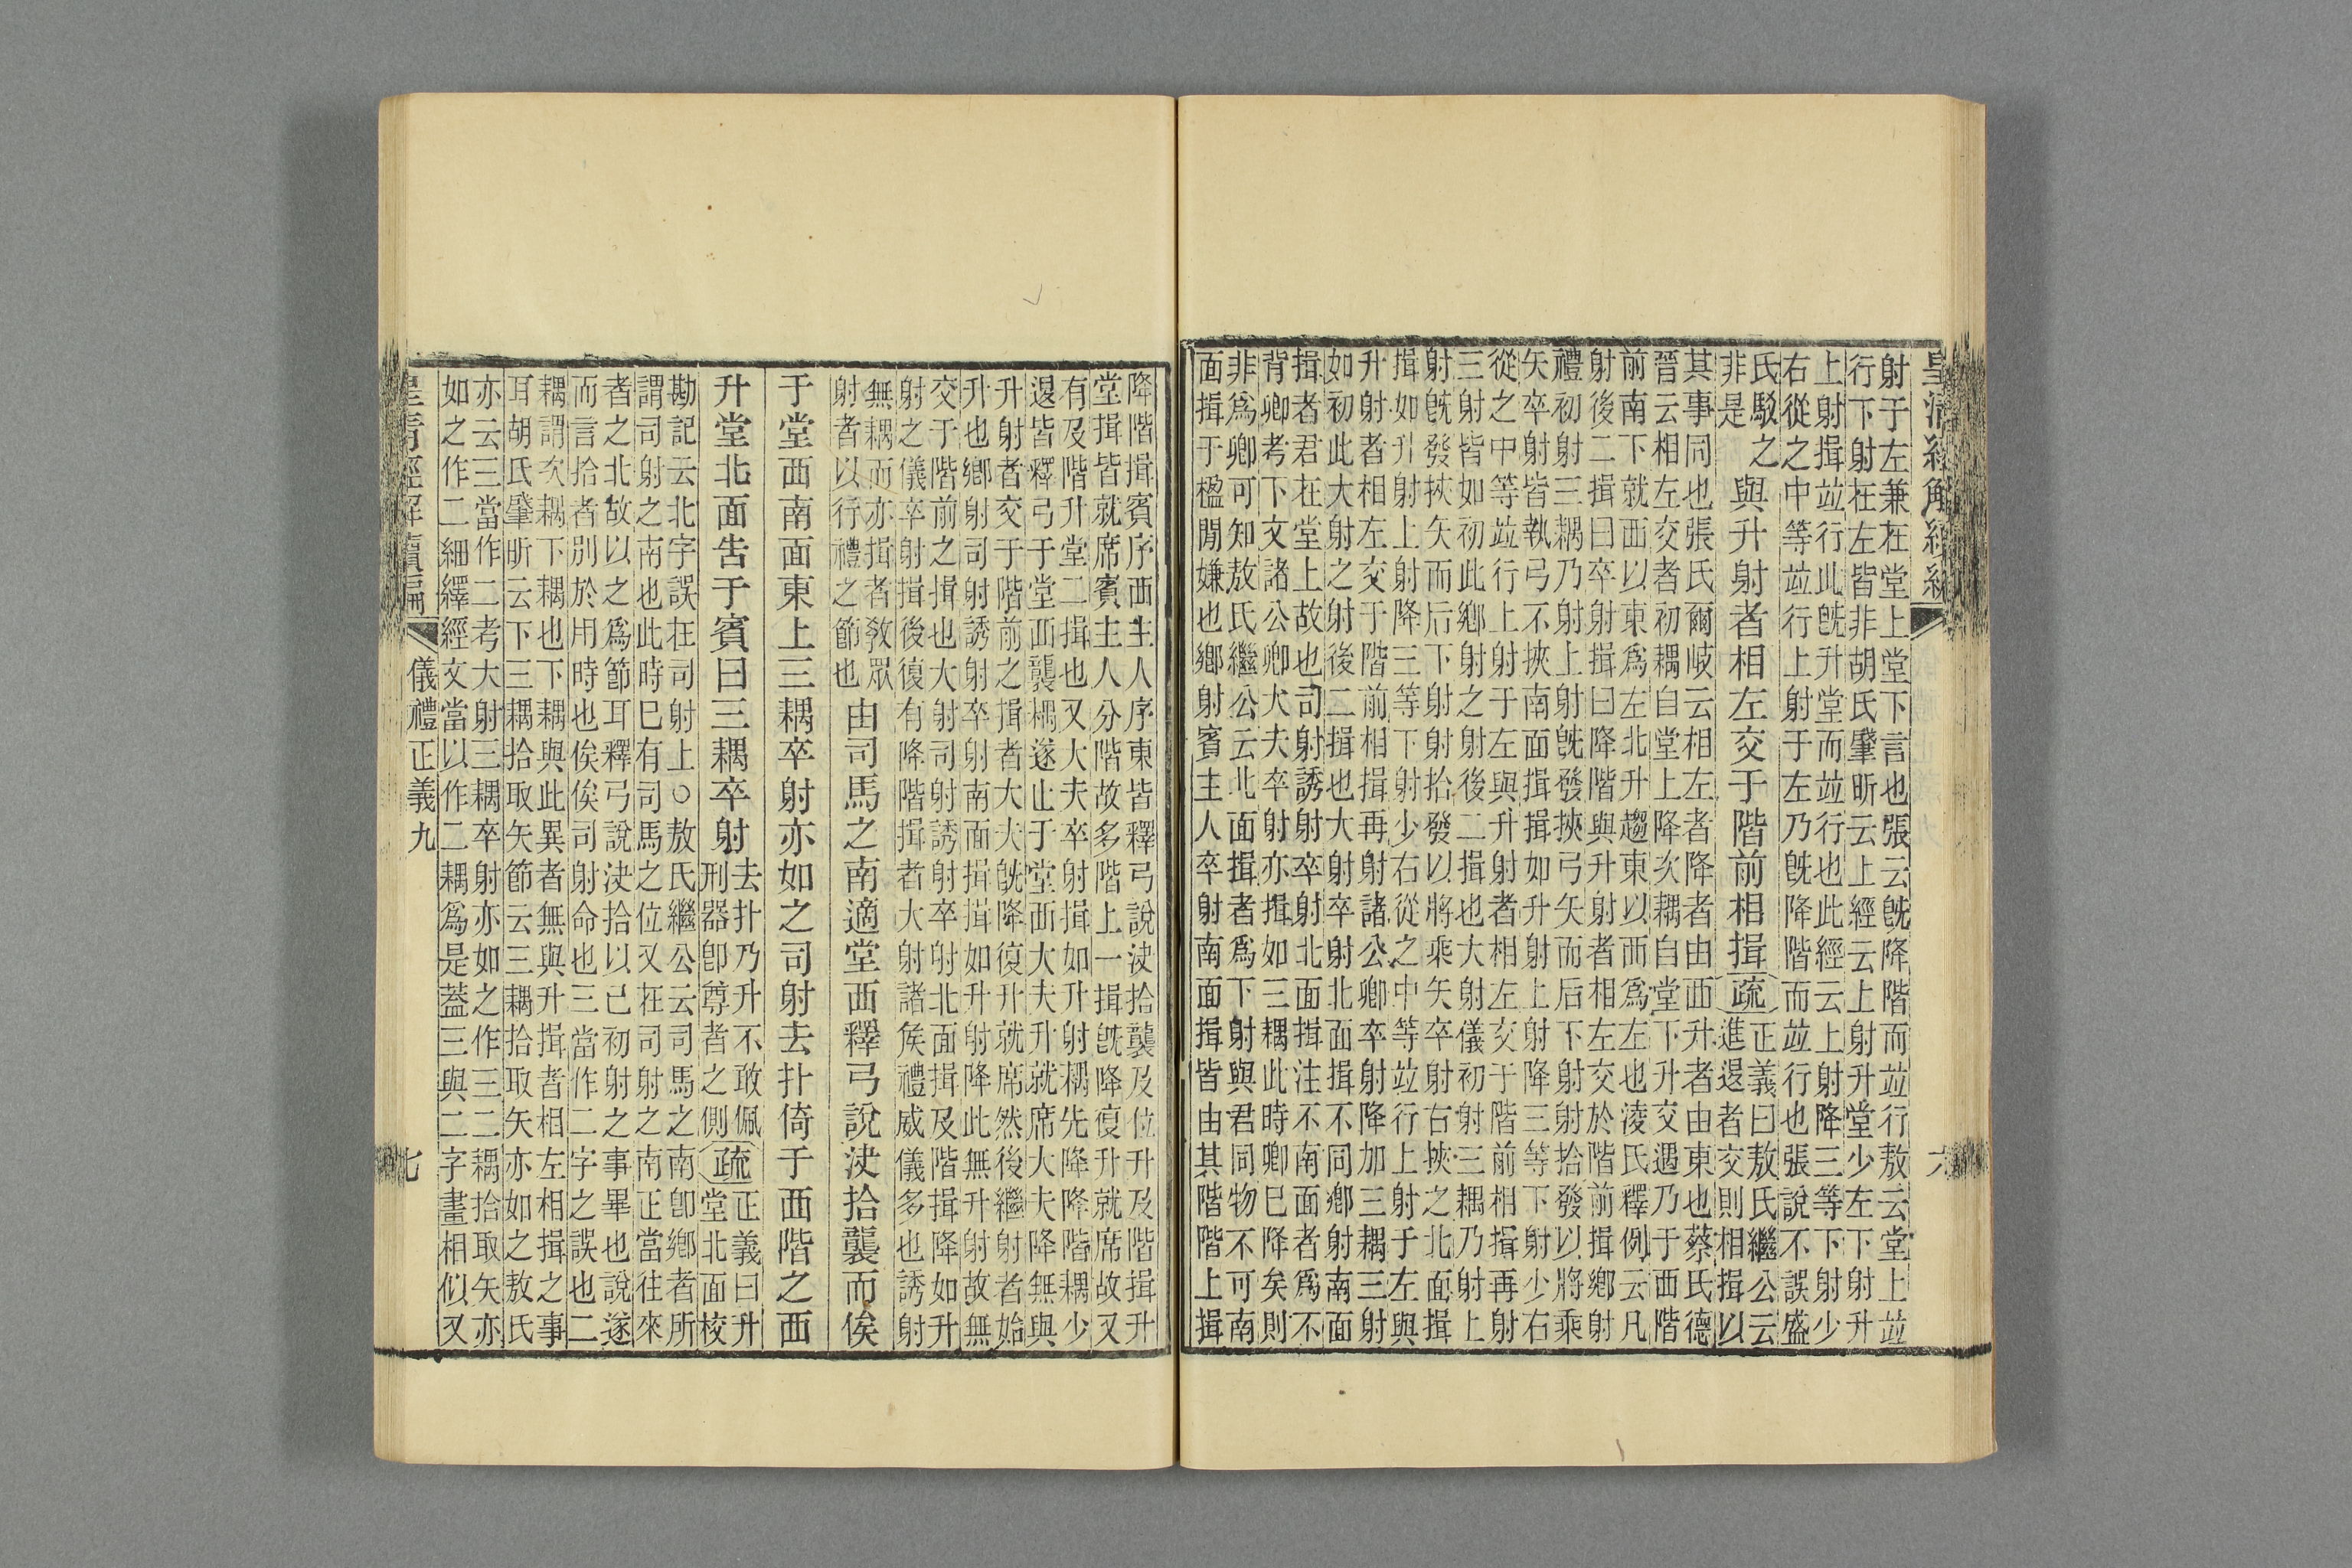 皇清經解續編
六
射于左兼在堂上堂下言也張云旣降階而竝行敖云堂上竝
行下射在左皆非胡氏肇昕云上經云上射升堂少左下射升
上射揖竝行此旣升堂而竝行也此經云上射降三等下射少
右從之中等竝行上射于左乃旣降階而竝行也張說不誤盛
氏駁之
非是
與升射者相左交于階前相揖
疏
正義曰敖氏繼公云
進退者交則相揖以
其事同也張氏爾岐云相左者降者由西升者由東也蔡氏德
晉云相左交者初耦自堂上降次耦自堂下升交遇乃于西階
前南下就西以東爲左北升趨東以西爲左也淩氏釋例云凡
射後二揖曰卒射揖曰降階與升射者相左交於階前揖鄉射
禮初射三耦乃射上射旣發挾弓矢而后下射射拾發以將乘
矢卒射皆執弓不挾南面揖揖如升射上射降三等下射少右
從之中等竝行上射于左與升射者相左交于階前相揖再射
三射皆如初此鄉射之射後二揖也大射儀初射三耦乃射上
射旣發挾矢而后下射射拾發以將乘矢卒射右挾之北面揖
揖如升射上射降三等下射少右從之中等竝行上射于左與
升射者相左交于階前相揖再射諸公卿卒射降加三耦三射
如初此大射之射後二揖也大射卒射北面揖不同鄉射南面
揖者君在堂上故也司射誘射卒射北面揖注不南面者爲不
背卿考下文諸公卿大夫卒射亦揖如三耦此時卿已降矣則
非爲卿可知敖氏繼公云北面揖者爲下射與君同物不可南
面揖于楹閒嫌也鄉射賓主人卒射南面揖皆由其階階上揖
降階揖賓序西主人序東皆釋弓說決拾襲及位升及階揖升
堂揖皆就席賓主人分階故多階上一揖旣降復升就席故又
有及階升堂二揖也又大夫卒射揖如升射耦先降降階耦少
退皆釋弓于堂西襲耦遂止于堂西大夫升就席大夫降無與
升射者交于階前之揖者大夫旣降復升就席然後繼射者始
升也鄉射司射誘射卒射南面揖揖如升射降此無升射故無
交于階前之揖也大射司射誘射卒射北面揖及階揖降如升
射之儀卒射揖後復有降階揖者大射諸侯禮威儀多也誘射
無耦而亦揖者敎眾
射者以行禮之節也
由司馬之南適堂西釋弓說決拾襲而俟
于堂西南面東上三耦卒射亦如之司射去扑倚于西階之西
升堂北面告于賓曰三耦卒射
去扑乃升不敢佩
刑器卽尊者之側
疏
正義曰升
堂北面校
勘記云北字誤在司射上○敖氏繼公云司馬之南卽鄉者所
謂司射之南也此時已有司馬之位又在司射之南正當往來
者之北故以之爲節耳釋弓說決拾以已初射之事畢也說遂
而言拾者別於用時也俟俟司射命也三當作二字之誤也二
耦謂次耦下耦也下耦與此異者無與升揖者相左相揖之事
耳胡氏肇昕云下三耦拾取矢節云三耦拾取矢亦如之敖氏
亦云三當作二考大射三耦卒射亦如之作三二耦拾取矢亦
如之作二細繹經文當以作二耦爲是蓋三與二字畫相似又
皇清經解續編
儀禮正義九
七